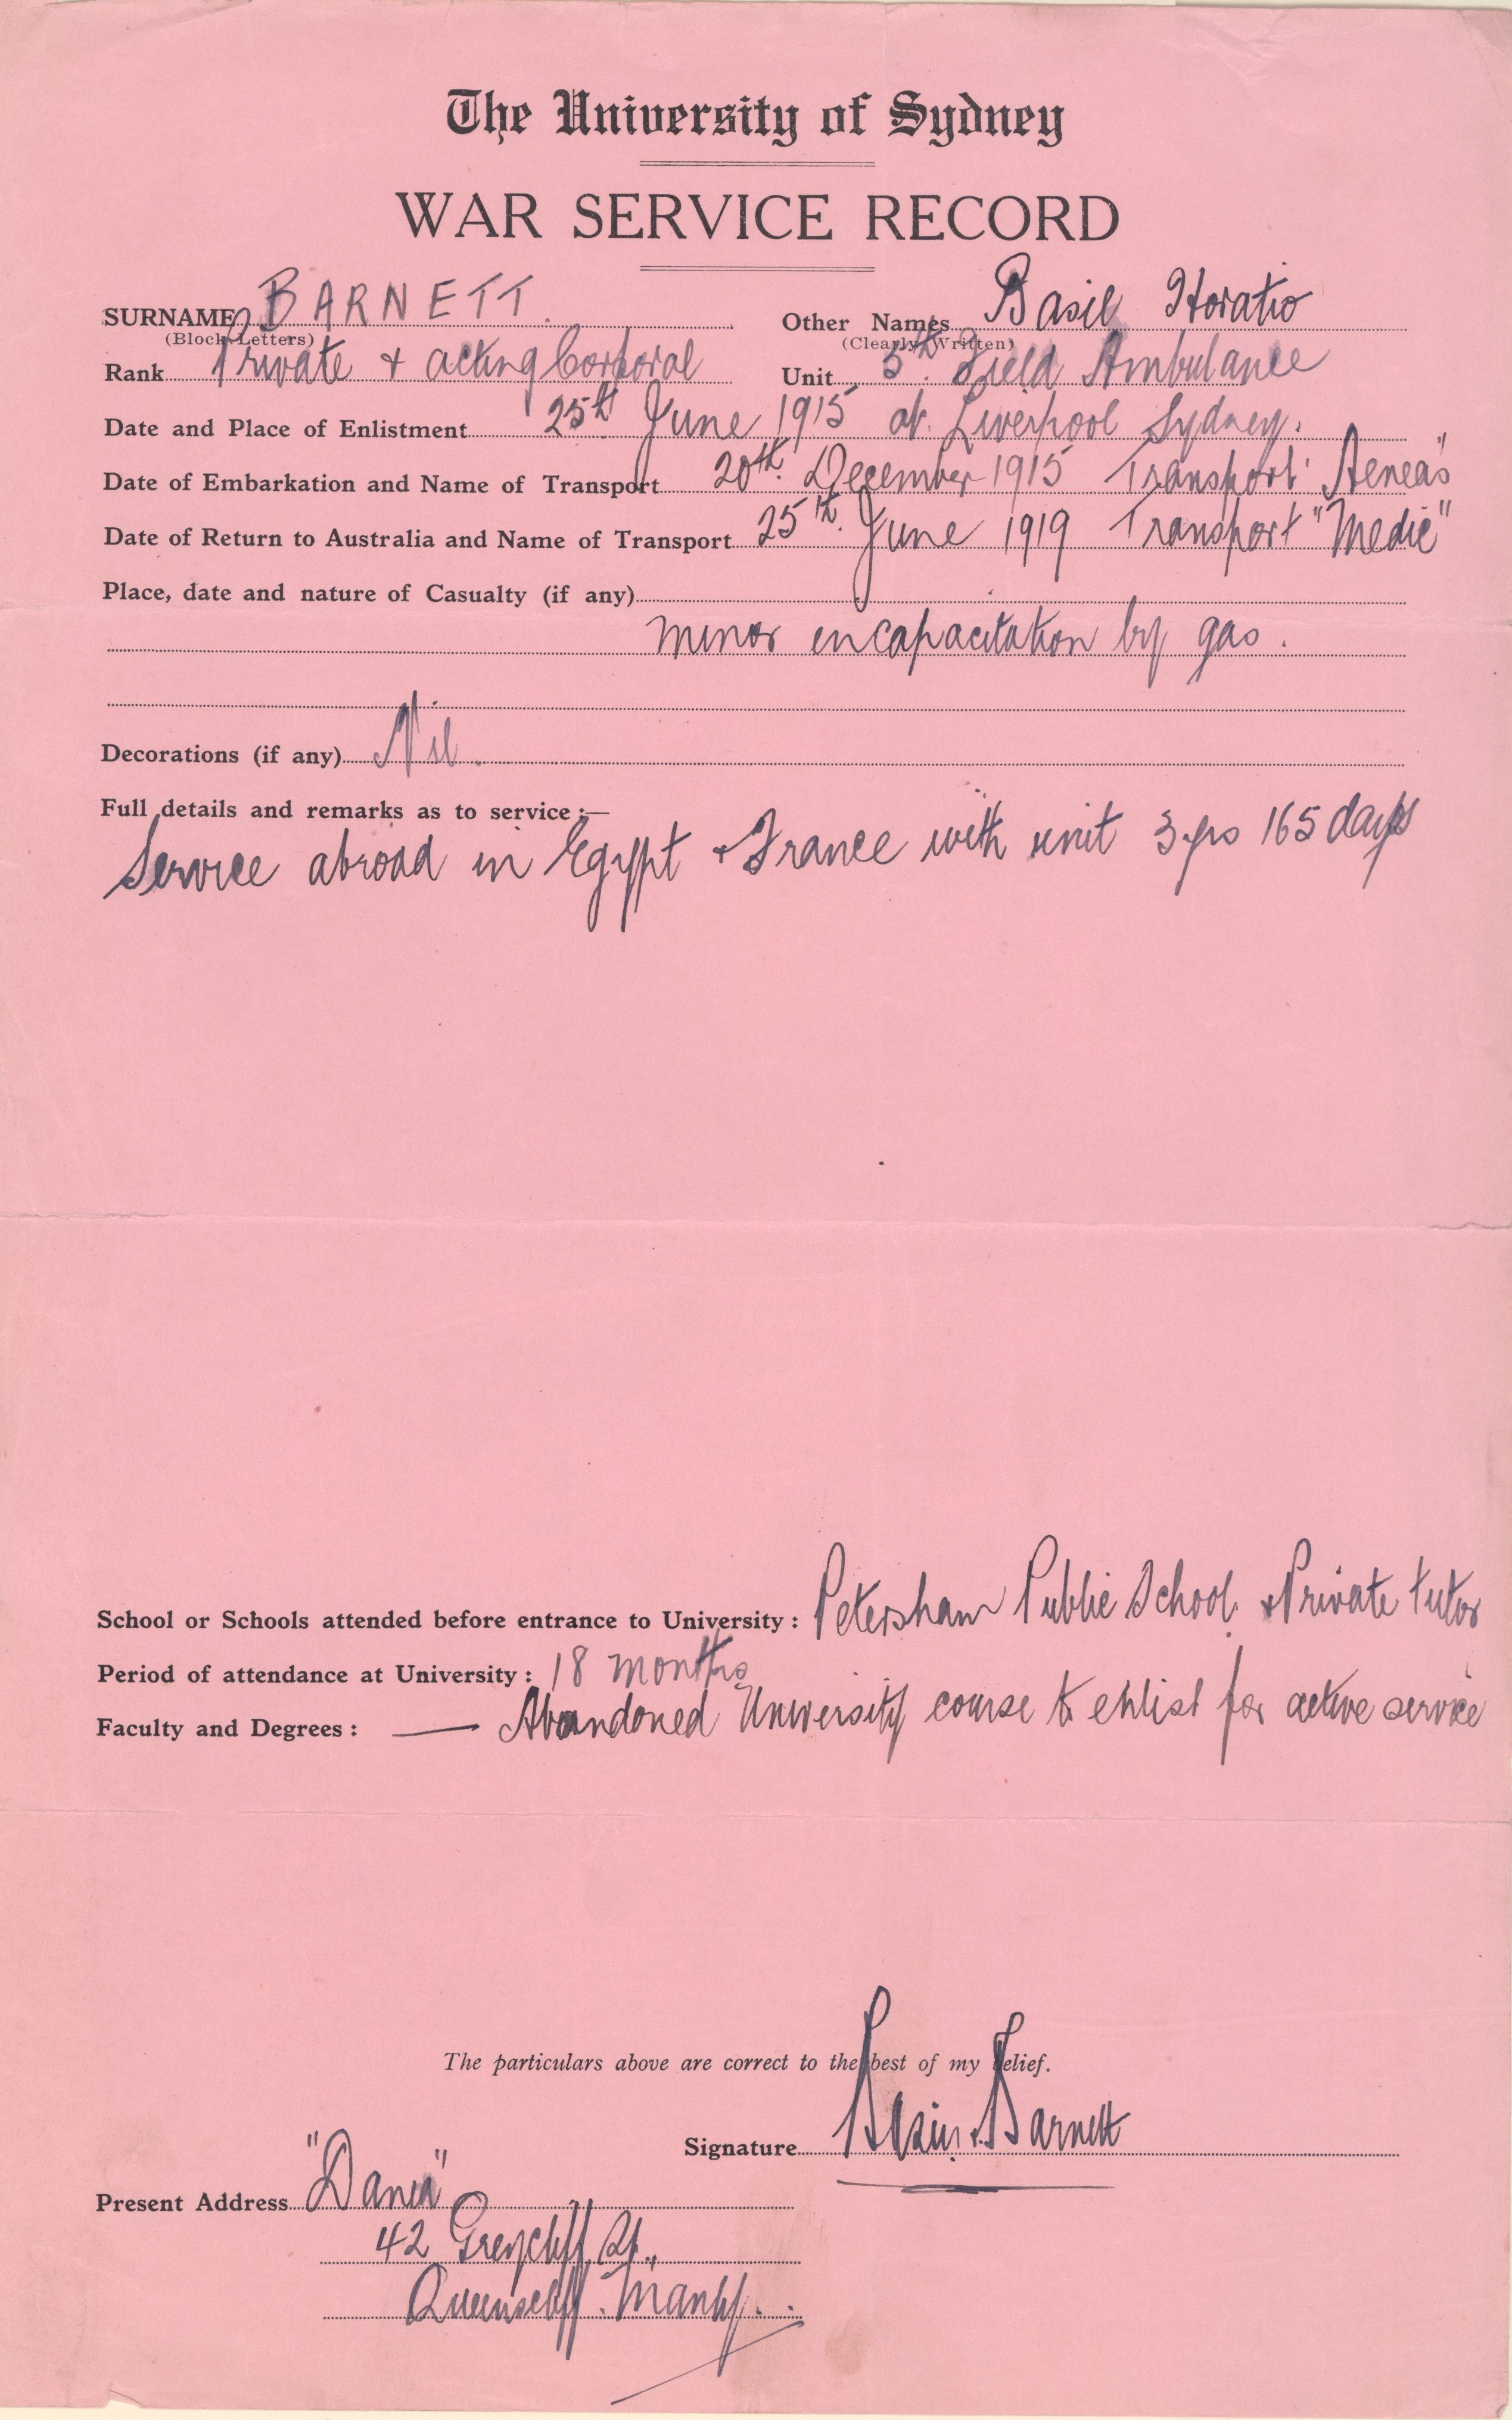 The University of Sydney
WAR SERVICE RECORD
SURNAME BARNETT. Other Names Basil Horatio
(Block Letters) (Clearly Written)
Rank Private & acting Corporal Unit 5th. Field Ambulance
Date and Place of Enlistment 25th June 1915 at Liverpool Sydney.
Date of Embarkation and Name of Transport 20th. December 1915 Transport "Aeneas"
Date of Return to Australia and Name of Transport 25th. June 1919 Transport "Medic"
Place, date and nature of Casualty (if any)
minor encapacitation by gas.
Decorations (if any) Nil.
Full details and remarks as to service :—
Service abroad in Egypt & France with unit 3 yrs 165 days
School or Schools attended before entrance to University : Petersham Public School & Private tutor
Period of attendance at University : 18 months
Faculty and Degrees : — Abandoned University course to enlist for active service
The particulars above are correct to the best of my belief.
Signature Barnett
Present Address
42 Greycliff St.,
Queenscliff. Manly.